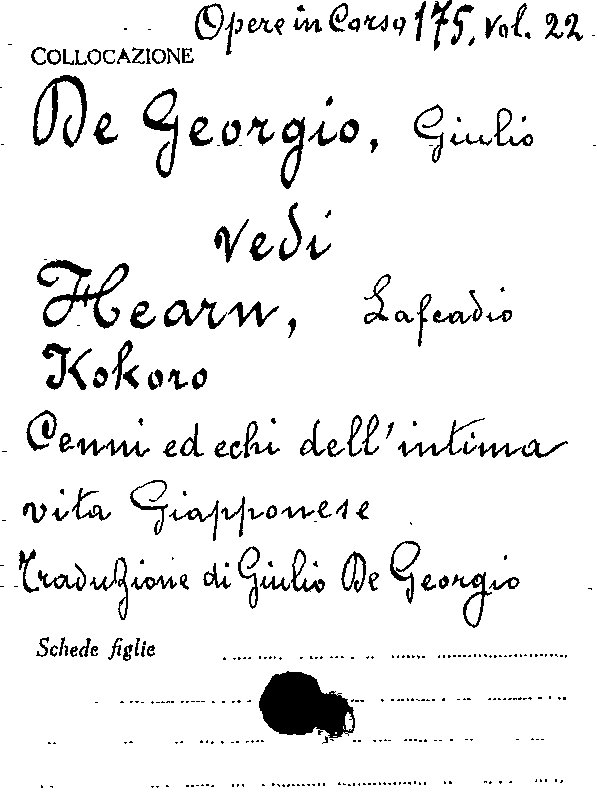 Opere in Corso 175, Vol. 22
COLLOCAZIONE
De Georgio, Giulio
vedi
Hearn, Lafcadio
Kokoro
Cenni ed echi dell'intima
vita Giapponese
Traduzione di Giulio De Georgio
Schede figlie